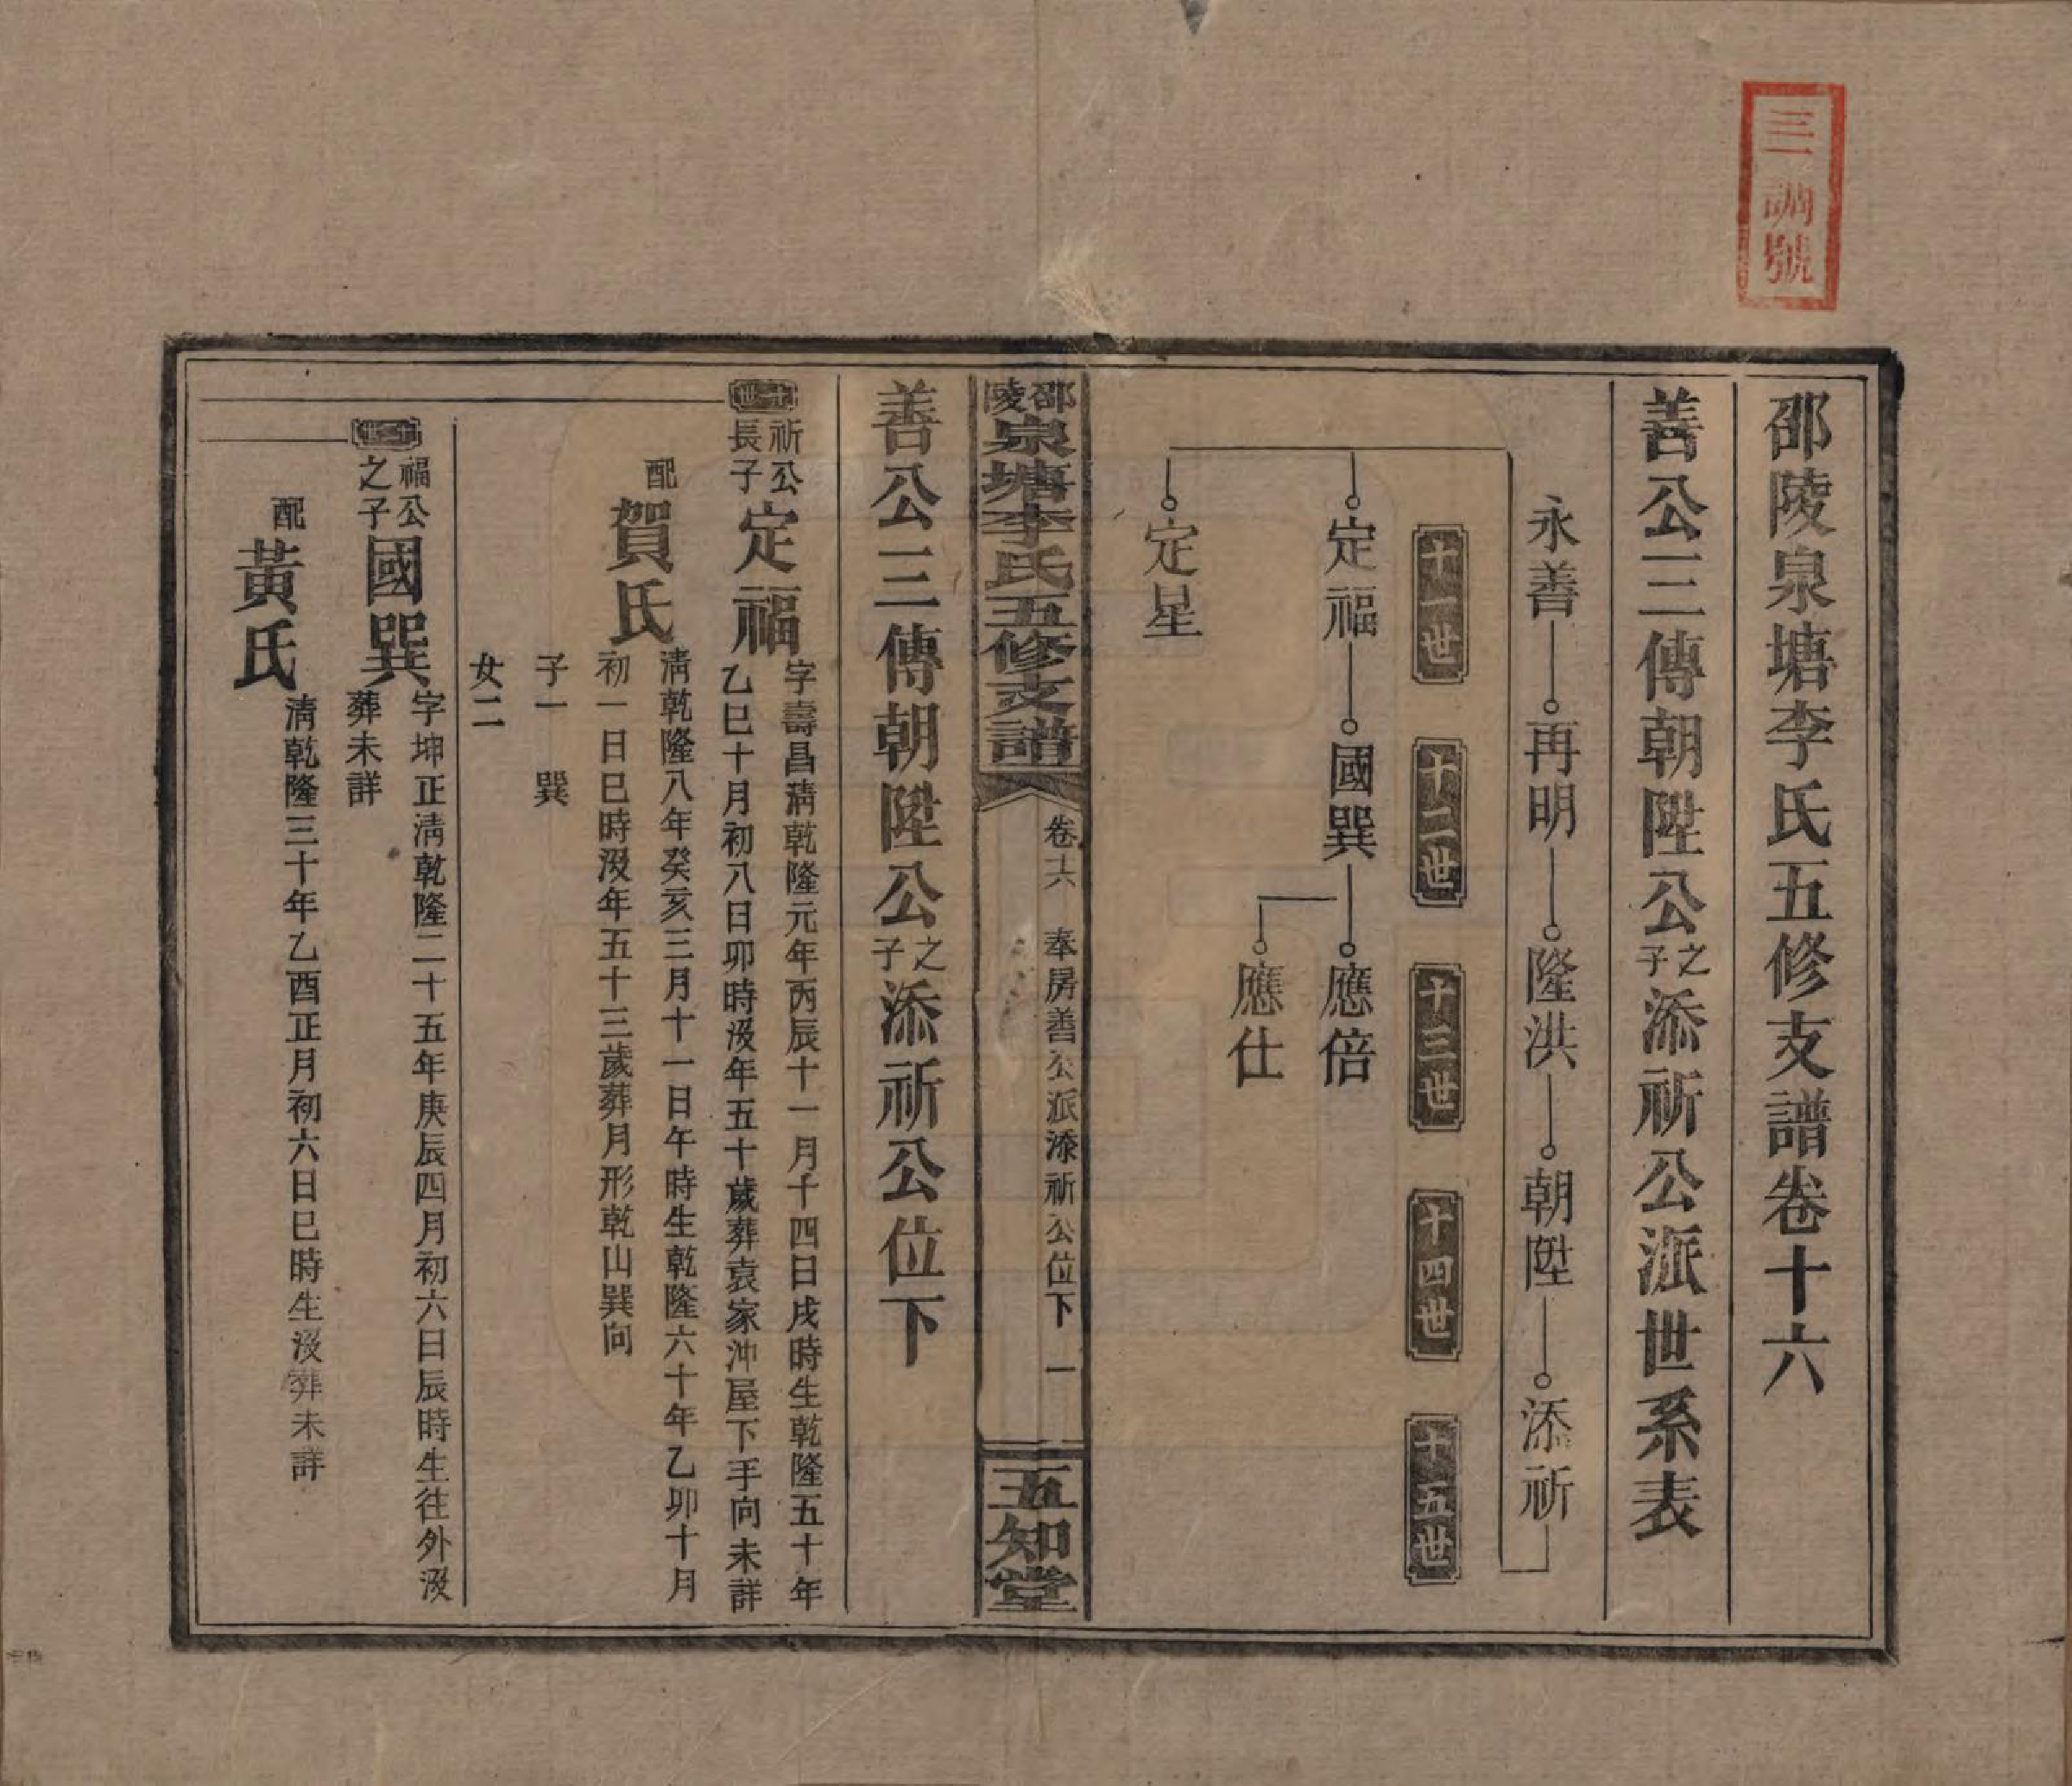 三調號
邵陵泉塘李氏五修支譜卷十六
善公三傳朝陞公之子添祈公派世系表
永善 再明 隆洪 朝陞 添祈
十一世 十二世 十三世 十四世 十五世
定福 國巽 應倍
應仕
定星
邵陵泉塘李氏五修支譜 卷十六 奉房善公派添祈公位下 一 五知堂
善公三傳朝陞公之子添祈公位下
十一世 祈公長子 定福 字壽昌淸乾隆元年丙辰十一月十四日戌時生乾隆五十年
乙巳十月初八日卯時沒年五十歲葬袁家沖屋下手向未詳
配 賀氏 淸乾隆八年癸亥三月十一日午時生乾隆六十年乙卯十月
初一日巳時沒年五十三歲葬月形乾山巽向
子一 巽
女二
十二世 福公之子 國巽 字坤正淸乾隆二十五年庚辰四月初六日辰時生往外沒
葬未詳
配 黃氏 淸乾隆三十年乙酉正月初六日巳時生沒葬未詳